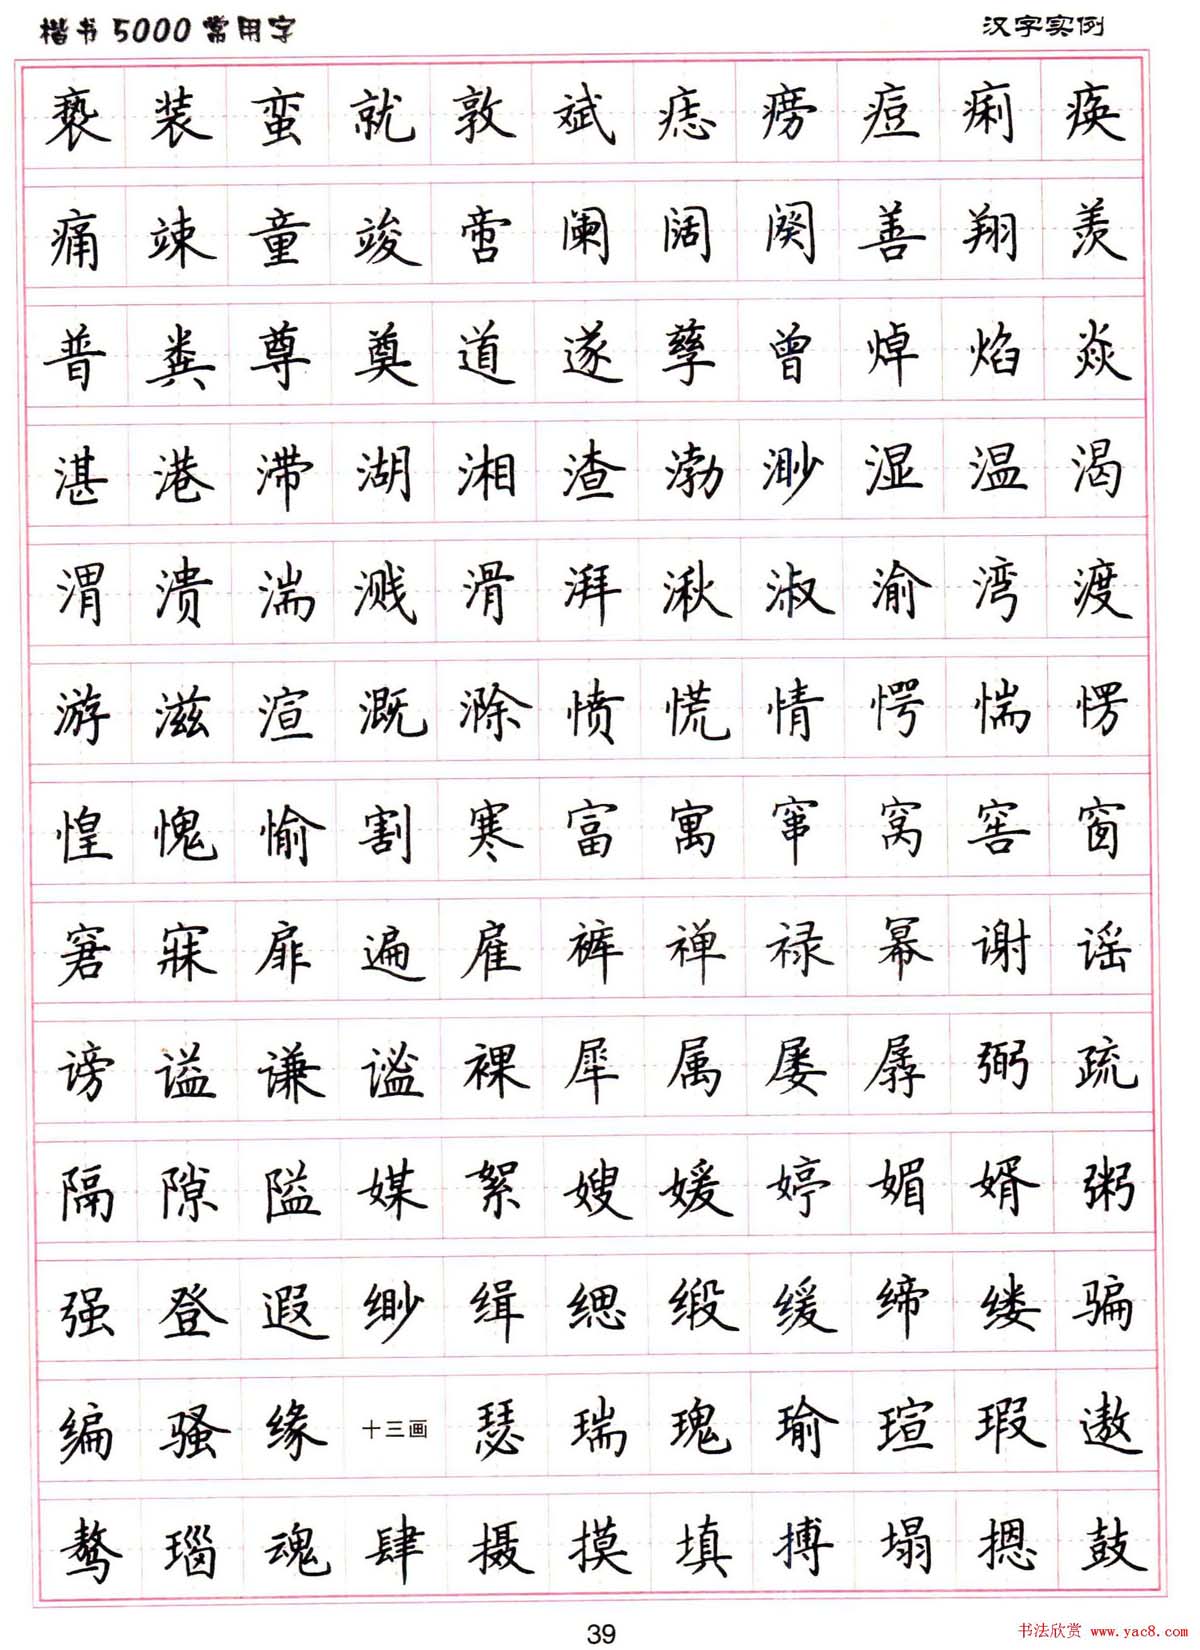 楷书5000常用字 汉字实例
亵 装 蛮 就 敦 斌 痣 痨 痘 痢 痪
痛 竦 童 竣 啻 阑 阔 阕 善 翔 羡
普 粪 尊 奠 道 遂 孳 曾 焯 焰 焱
湛 港 滞 湖 湘 渣 渤 渺 湿 温 渴
渭 溃 湍 溅 滑 湃 湫 淑 渝 湾 渡
游 滋 渲 溉 滁 愤 慌 情 愕 惴 愣
惶 愧 愉 割 寒 富 寓 窜 窝 窖 窗
窘 寐 扉 遍 雇 裤 禅 禄 幂 谢 谣
谤 谥 谦 谧 裸 犀 属 屡 孱 弼 疏
隔 隙 隘 媒 絮 嫂 媛 婷 媚 婿 粥
强 登 遐 缈 缉 缌 缎 缓 缔 缕 骗
编 骚 缘 十三画 瑟 瑞 瑰 瑜 瑄 瑕 遨
骜 瑙 魂 肆 摄 摸 填 搏 塌 摁 鼓
39
书法欣赏 www.yac8.com